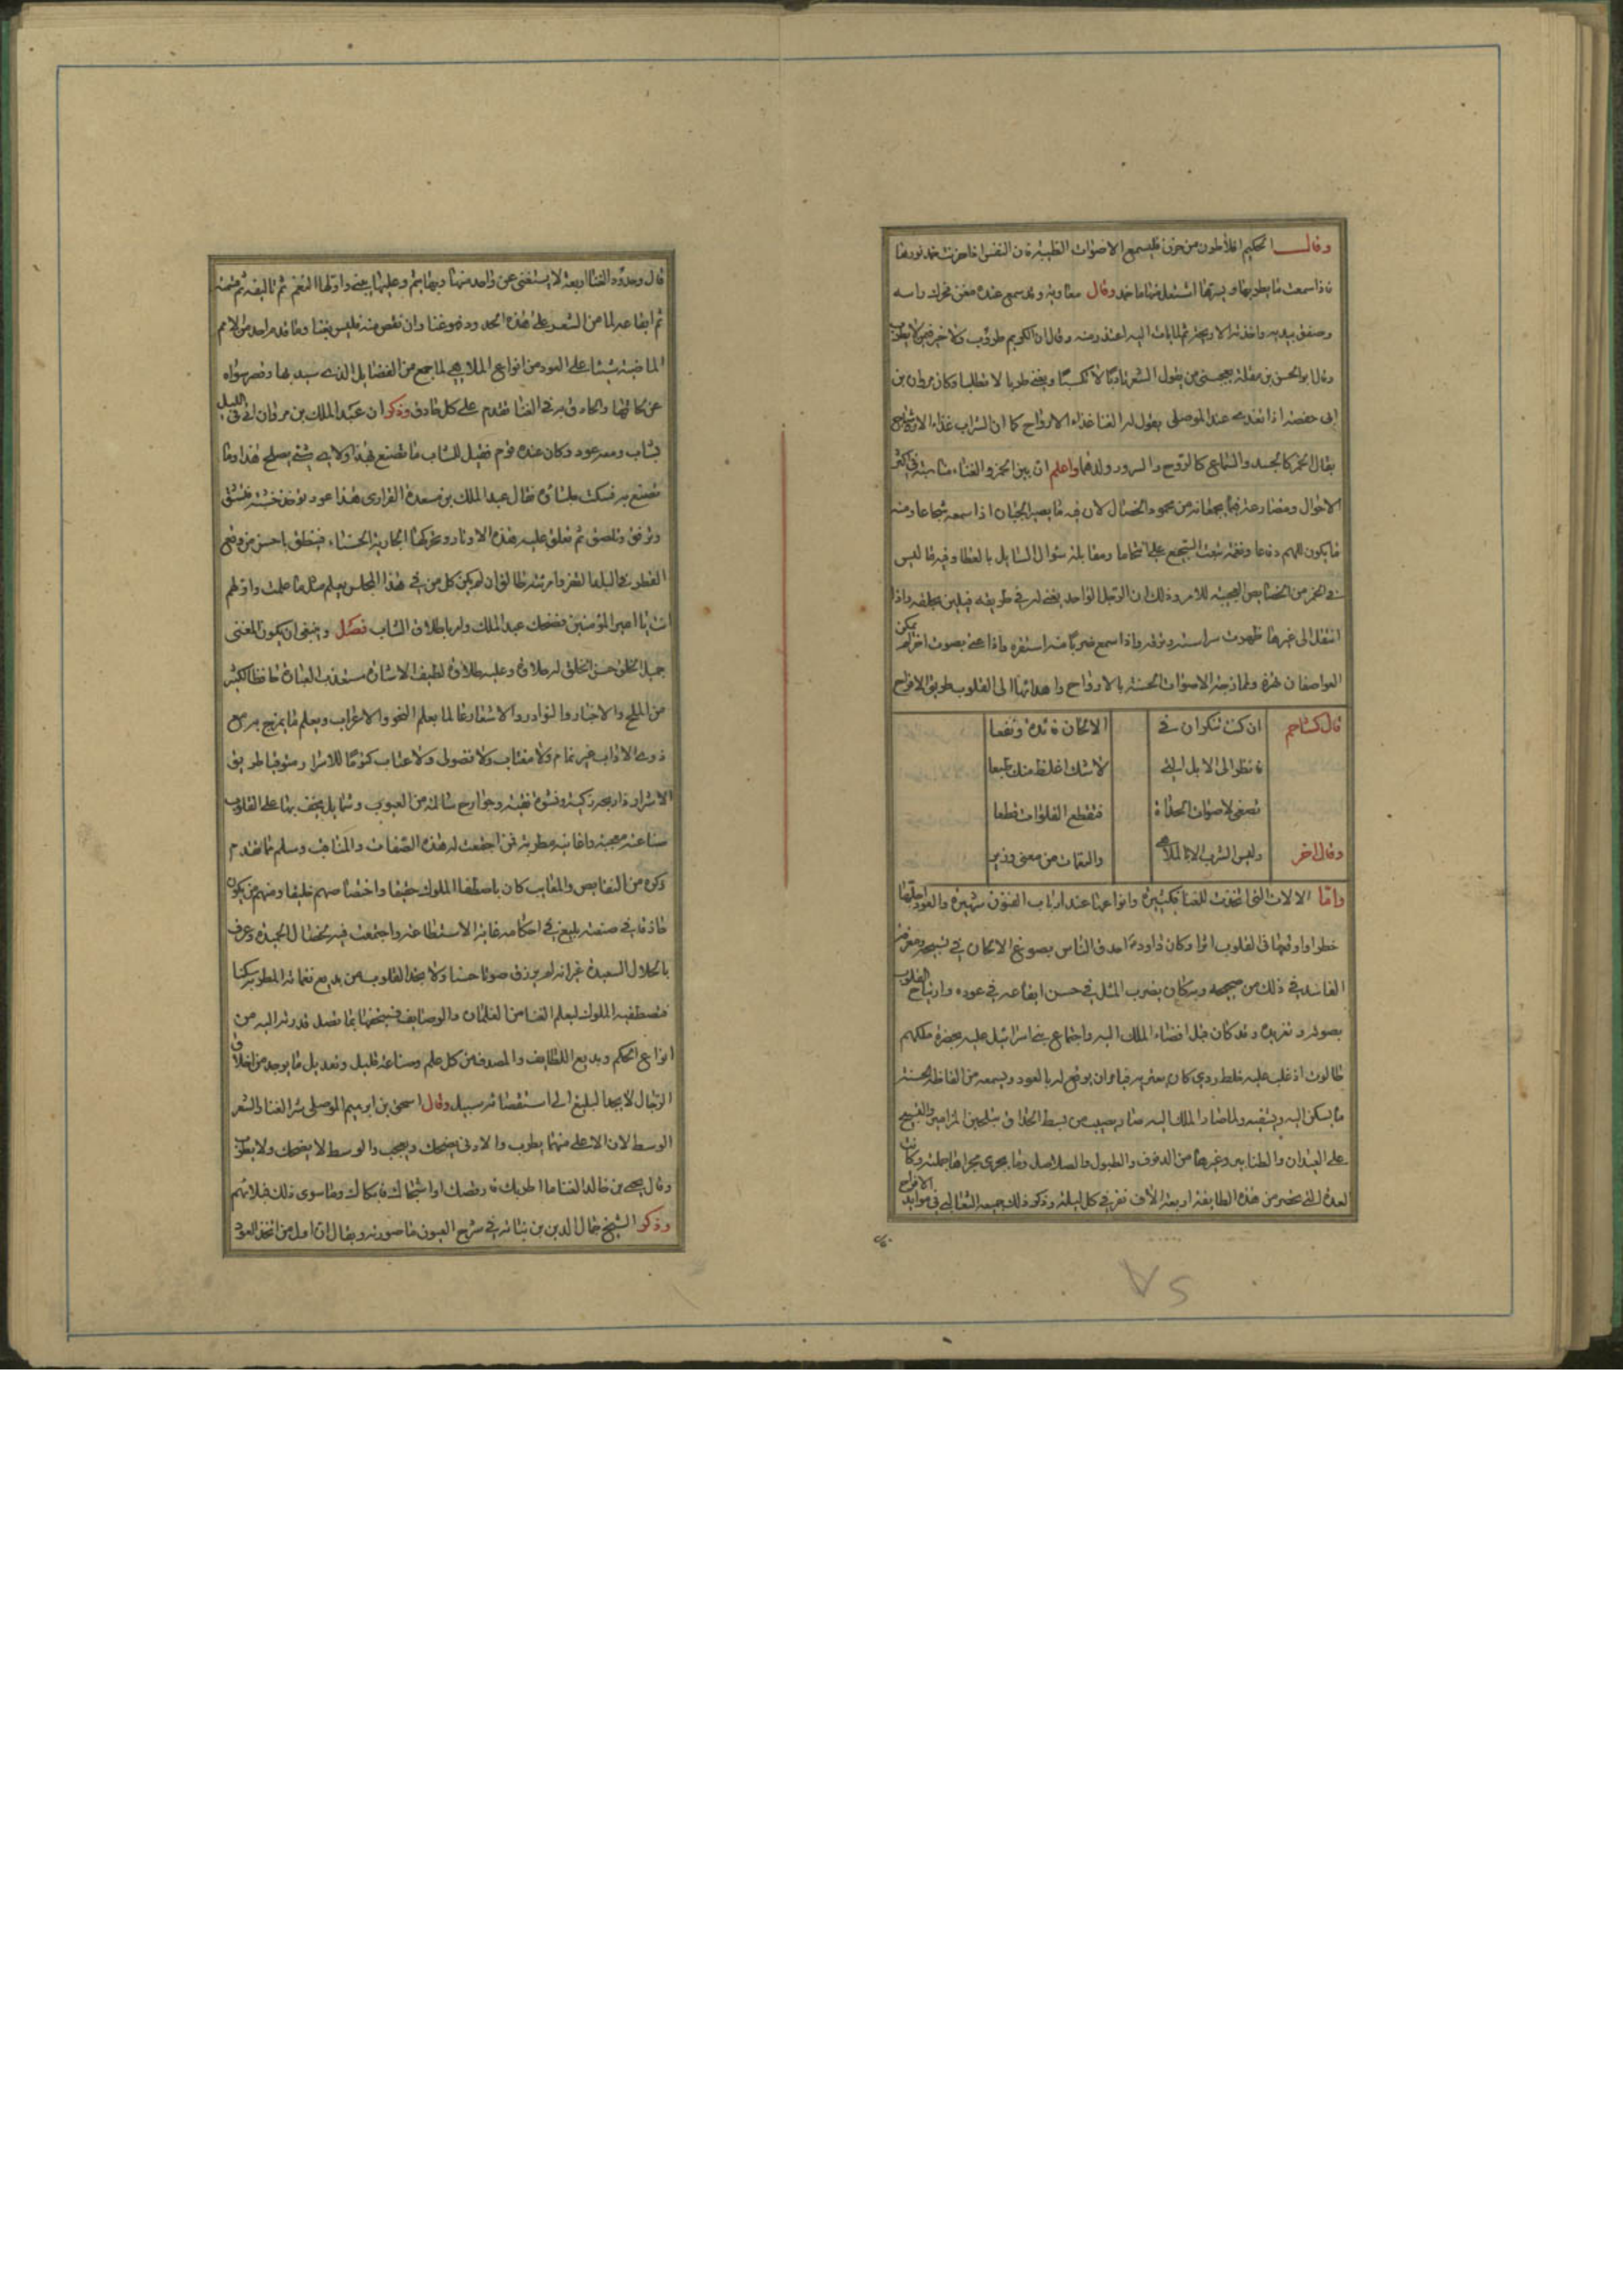 وقال الحكيم افلاطون من حزن فليسمع الاصوات الطيبة فان النفس اذا حزنت خمد نورها
فاذا سمعت ما يطربها ويسرها اشتعل منها ما خمد وقال معاوية وقد سمع عنده مغن فحرك راسه
وصفق بيديه واخذته الاريحية ثم لما بات اليه اعتذر منه وقال ان الكريم طروب ولا خير فيمن لا يطرب
وقال ابو الحسن بن مقلة يعجبني من يقول الشعر تادبا لا تكسبا ويغني طربا لا تطلبا وكان مروان بن
ابي حفصة اذا تغدى عند الموصلي يقول له الغنا غذاء الارواح كما ان الشراب غذاء الاشباح
يقال الخمر كالجسد والسماع كالروح والسرور ولدهما واعلم ان بين الخمر والغناء مشابهة في اكثر
الاحوال ومضارعة فيما يجمعانه من محمود الخصال لان فيه ما يصير الجبان اذا سمعه شجاعا ومنه
ما يكون للهم دفاعا
في الخمر من الخصايص العجيبة للامر وذلك ان الرجل الواحد يغني له في طريقه فيلين
انتقل الى غيرها ظهرت شراسته ونزقه واذا سمع ضربا منه استفزه واذا غني بصوت اخر لم يمكن
العواصفان هزه ولممازجة الاصوات الحسنة بالارواح واهدائها الى القلوب طريق الافراح
قال كشاجم ان كنت تنكر ان في الالحان فائدة ونفعا
فانظر الى الابل التي لا شك اغلظ منك طبعا
تصغي لاصوات الحداة فتقطع الفلوات قطعا
وقال اخر وليس الشرب الا بالملاهي والنغمات من مغنى وزير
واما الالات التي اتخذت للغنا فكثيرة وانواعها عند ارباب الفنون شهيرة والعود اجلها
خطرا واوقعها في القلوب اثرا وكان داود احذق الناس بصوغ الالحان في تسبيحه ومعرفة
الفاسد في ذلك من صحيحه وبه كان يضرب المثل في حسن ايقاعه في عوده وارتياح القلوب
بصوته وتغريده وقد كان قبل افضاء الملك اليه واجتماع بني اسرائيل عليه بحضرة ملكهم
طالوت اذ غلب عليه خلط ردي كان يعتريه فيامر ان يوقع له بالعود ويسمعه من الفاظه الحسنة
ما يسكن اليه ويشفيه ولما صار الملك اليه من بسط الحذاق ملحين المزامير والتسبيح
على العيدان والطنابير وغيرها من الدفوف والطبول والصلاصل وما يجري مجراها جملة وكانت
العدة التي تحضر من هذه الطايفة اربعة الاف نفر في كل ليلة وذكر ذلك جميعه الثعالبي في موايد الافراح
قال وحدود الغنا اربعة لا يستغنى عن واحد منها وبها يتم وعليها يبنى واولها النغم ثم تاليفه ثم قسمته
ثم ايقاعه لما من الشعر على هذه الحدود فهو غنا وان نقص منه فليس بغنا وما قدم احد من الامم
الماضية شيئا على العود من انواع الملاهي لما جمع من الفضايل الذي سيد بها وقصر سواه
عن لحاقها والحاذق به في الغنا مقدم على كل حاذق وذكر ان عبد الملك بن مروان اتى في الليل
بشاب ومعه عود وكان عنده قوم فقيل للشاب ما تصنع بهذا ولاي شيء يصلح هذا وما
تصنع به فسكت جلساؤه فقال عبد الملك بن مسعدة الفزاري هذا عود يوخذ خشبة فتشق
وترقق وتلصق ثم تعلق عليه هذه الاوتار وتحركها الجارية الحسناء فينطق باحسن من وقع
القطر في البلد القفر وامرئته طالق ان لم يكن كل من في هذا المجلس يعلم مثل ما علمت واولهم
انت يا امير المؤمنين فضحك عبد الملك وامر باطلاق الشاب فصل وينبغي ان يكون المغني
جميل الخلق حسن الخلق له حلاوة وعليه طلاوة لطيف الاشارة مستعذب العبارة حافظا لكثير
من الملح والاخبار والنوادر والاشعار عالما بعلم النحو والاعراب ويعلم ما يمزح به مع
ذوي الاداب غير نمام ولا مغتاب ولا فضولي ولا عتاب كتوما للاسرار متوقيا طريق
الاشرار ذا رايحة زكية ونشوة نقية وجوارح سالمة من العيوب وشمايل يخف بها على القلوب
صناعته معجبة واغانيه مطربة فمن اجتمعت له هذه الصفات والمناقب وسلم مما تقدم
ذكره من النقايص والمعايب كان باصطفا الملوك حقيقا واختصاصهم خليقا ومنهم من يكون
حاذقا في صنعته يبلغ في احكامه غاية الاستطاعة واجتمعت فيه الخصال الحميدة وعرف
بالخلال السعيدة غير انه لم يرزق صوتا حسنا ولا يجد القلوب من بديع نغماته المطربة سكنا
فتصطفيه الملوك ليعلم الغنا من الغلمان والوصايف فيتحفها بما تصل قدرته اليه من
انواع الحكم وبديع اللطايف والمصدق من كل علم وصناعة قليل وتعديل ما يوجد من اخلاق
الرجال لا يجد البليغ الى استقصائه سبيل وقال اسحق بن ابراهيم الموصلي شر الغنا والشعر
الوسط لان الاعلى منهما يطرب والادنى يضحك ويعجب والوسط لا يضحك ولا يطرب
وقال يحيى بن خالد الغنا ما اطربك فارقصك او اشجاك فابكاك وما سوى ذلك فبلاء وهم
وذكر الشيخ جمال الدين بن نباته في شرح العيون ما صورته ويقال ان اول من اتخذ العود